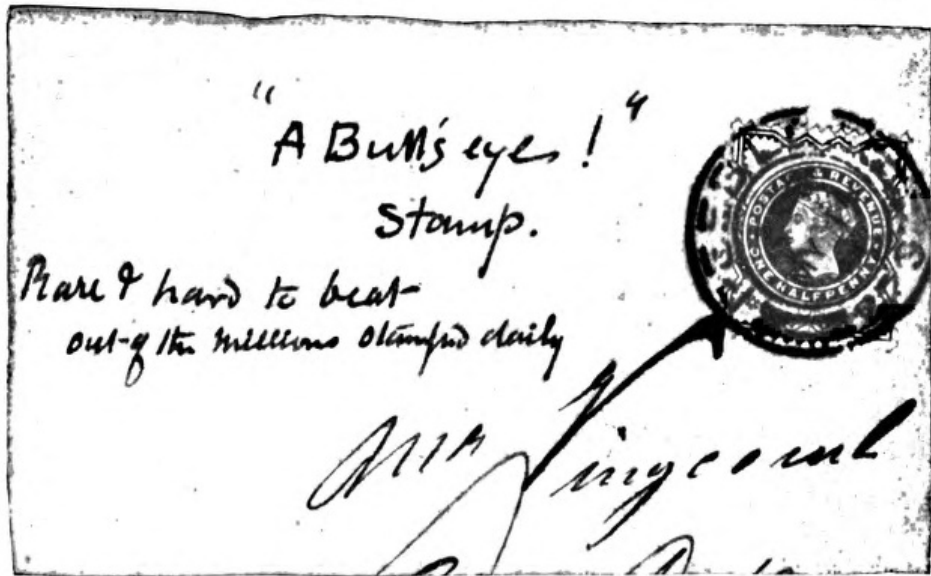 "A Bull's eye!"
Stamp.
Rare & hard to beat
out of the millions stamped daily
POSTAGE & REVENUE
ONE HALFPENNY